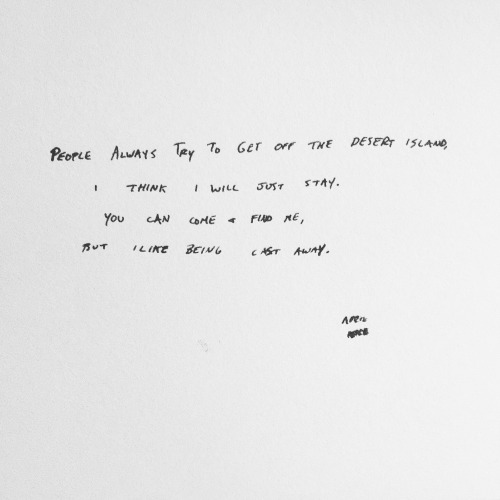 PEOPLE ALWAYS TRY TO GET OFF THE DESERT ISLAND,
I THINK I WILL JUST STAY.
YOU CAN COME & FIND ME,
BUT I LIKE BEING CAST AWAY.
APRIL